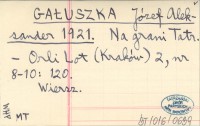 GAŁUSZKA Józef Alek-
sander 1921. Na grani Tatr.
- Orli Lot (Kraków) 2, nr
8-10: 120.
Wiersz.
MT